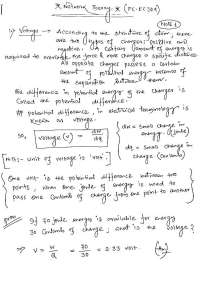 * Network Theory * (PC-EE301)
Note 1
1) Voltage → According to the structure of atom, there
are two types of charges: positive and
negative. A certain amount of energy is
required to the force & move charges a specific distance
All opposite charges possess a certain
amount of potential energy because of
the separation between them.
The difference in potential energy of the charges is
called the potential difference.
# potential difference, in electrical terminology is
known as voltage.
so, voltage (v) = dw/dq
dw = small change in
energy (Joule)
dq = small change in
charge (coulombs)
[Note:- Unit of voltage is 'volt']
One volt is the potential difference between two
points, when one joule of energy is used to
pass one coulomb of charge from one point to another
prob: If 70 joule energy is available for every
30 coulombs of charge, what is the voltage?
⇒ V = W/Q = 70/30 = 2.33 volt